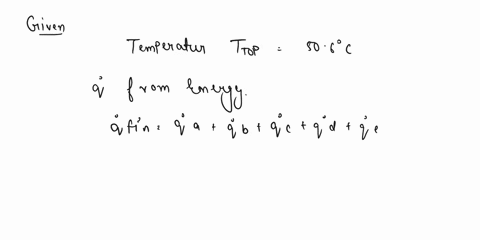 Given
Temperatur T_TOP = 50.6°C
q̇ from Energy.
q̇ fin = q̇a + q̇b + q̇c + q̇d + q̇e